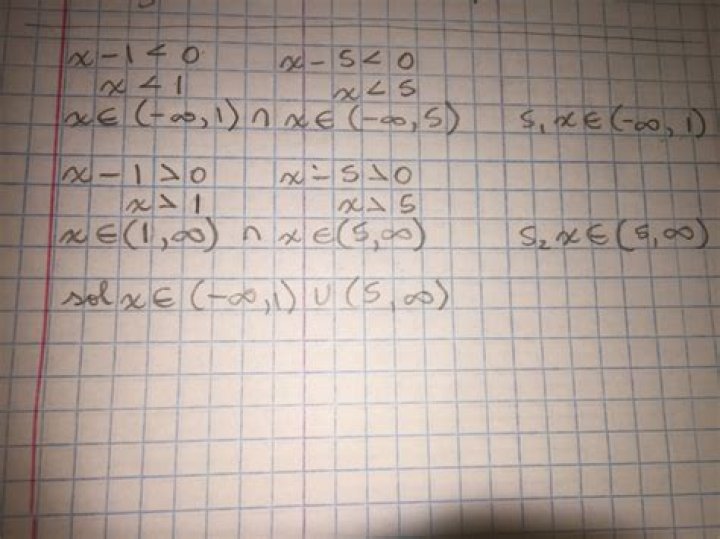 x - 1 < 0 x - 5 < 0
x < 1 x < 5
x ∈ (-∞, 1) ∩ x ∈ (-∞, 5) S₁ x ∈ (-∞, 1)
x - 1 > 0 x - 5 > 0
x > 1 x > 5
x ∈ (1, ∞) ∩ x ∈ (5, ∞) S₂ x ∈ (5, ∞)
sol x ∈ (-∞, 1) ∪ (5, ∞)